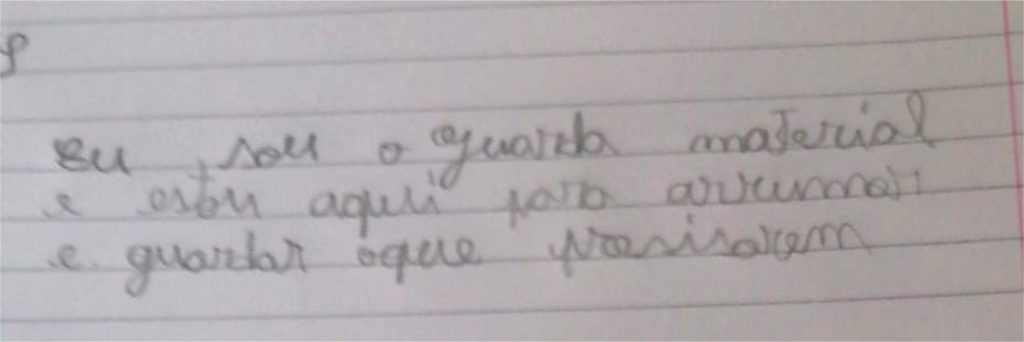 eu sou o guarda material
e estou aqui para arrumar
e guardar oque precisarem